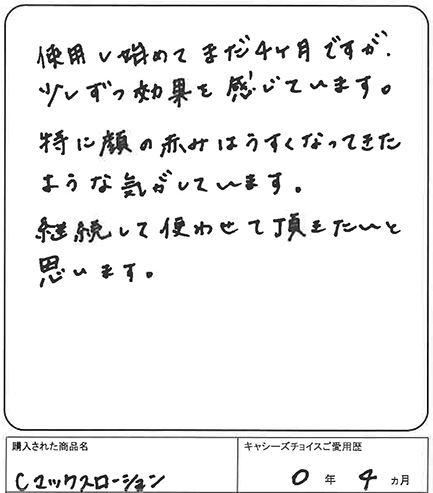 使用し始めてまだ4ヶ月ですが、
少しずつ効果を感じています。
特に顔の赤みはうすくなってきた
ような気がしています。
継続して使わせて頂きたいと
思います。
購入された商品名
キャシーズチョイスご愛用歴
Cマックスローション
0年4ヵ月